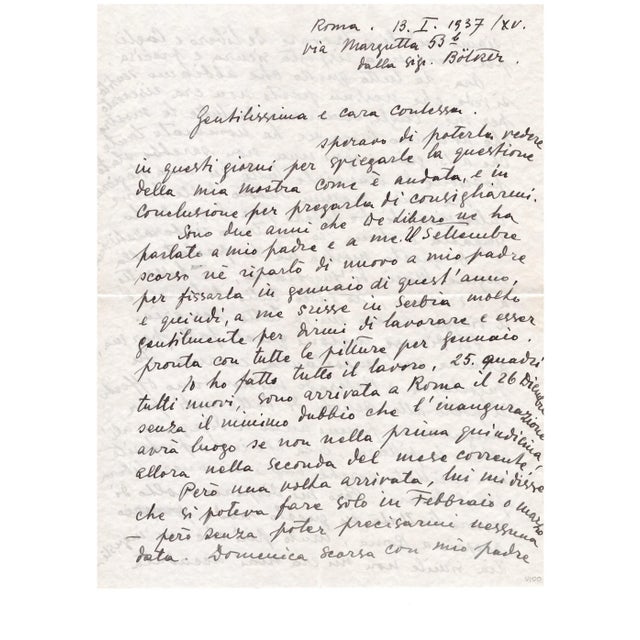 Roma. 13. I. 1937/XV.
via Margutta 53 b
dalla sig. Bötner.
Gentilissima e cara contessa.
speravo di poterla vedere
in questi giorni per spiegarle la questione
della mia mostra come è andata, e in
conclusione per pregarla di consigliarmi.
Sono due anni che De Libero ne ha
parlato a mio padre e a me. Il Settembre
scorso ne riparlò di nuovo a mio padre
per fissarla in gennaio di quest'anno,
e quindi, a me scisse in Serbia molto
gentilmente per dirmi di lavorare e esser
pronta con tutte le pitture per gennaio.
Io ho fatto tutto il lavoro, 25. quadri
tutti nuovi, sono arrivata a Roma il 26 Dicembre
senza il minimo dubbio che l'inaugurazione
avrà luogo se non nella prima quindicina,
allora nella seconda del mese corrente,
Però una volta arrivata, lui mi disse
che si poteva fare solo in Febbraio o marzo
– però senza poter precisarmi nessuna
data. Domenica scorsa con mio padre